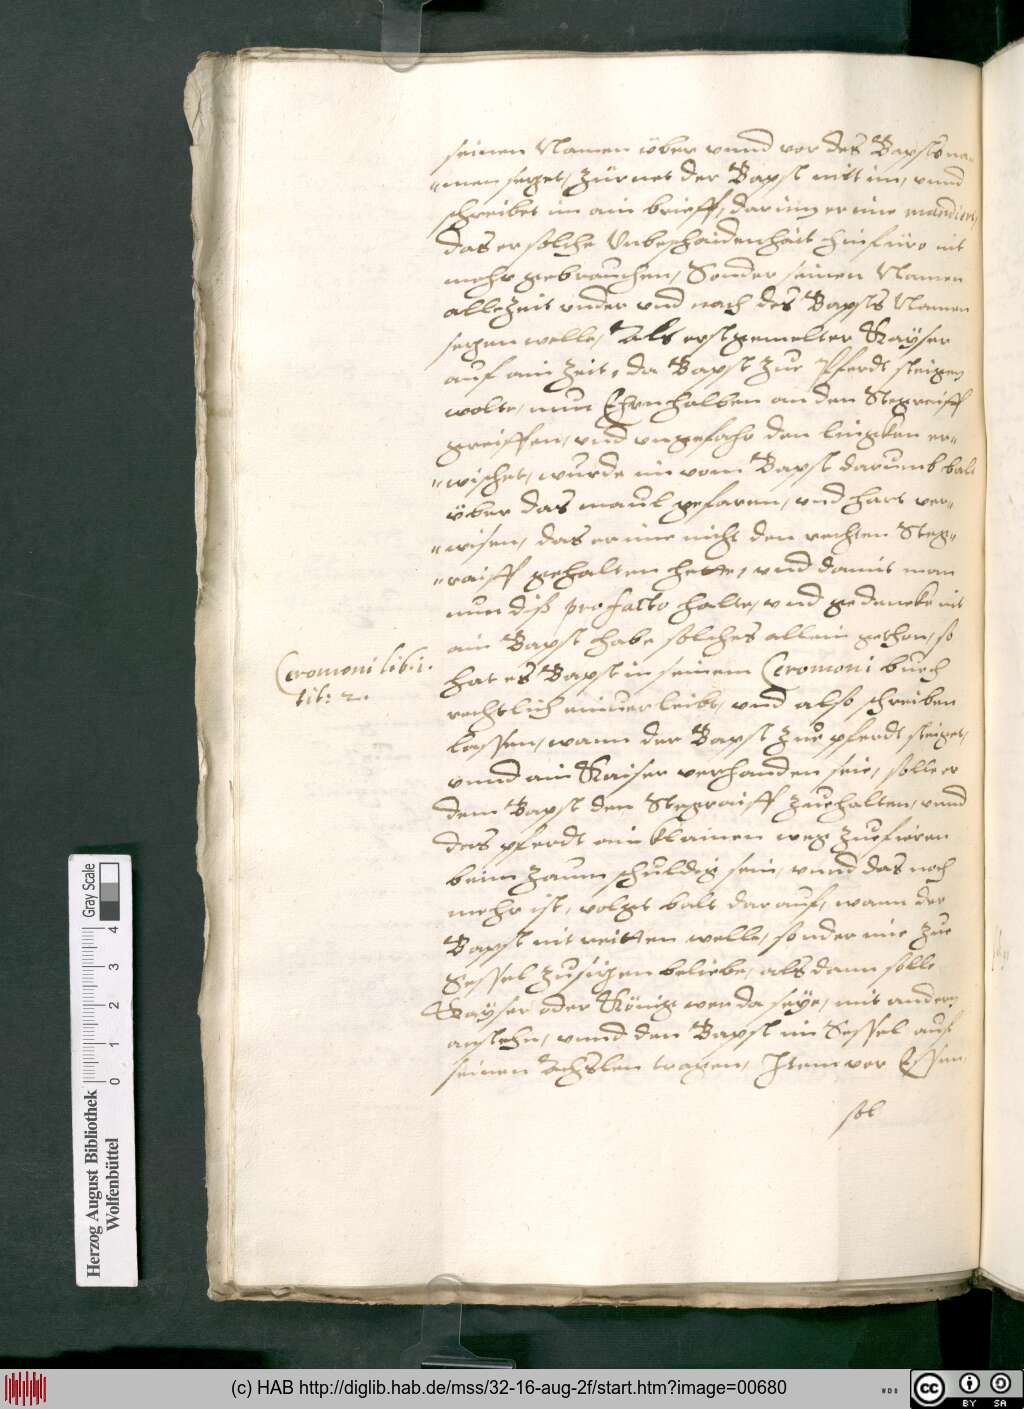 seinen Namen über vnnd vor des Bapsts na=
=men seczet, zürnet der Bapst mit im, vnnd
schreibet im ain brieff, darinn er ime mandiert,
das er solche Vnbeschaidenhait hinfüro nit
mehr gebrauchen, Sonder seinen Namen
allezeit vnder vnd nach des Bapsts Namen
seczen welle, Als erstgemelter Kayser
auf ain Zeit, da Bapst zue Pferdt steigen
wolte, nun Ehrnhalben an den Stegraiff
greiffen, vnd vngefahr den lingken er=
=wischet, wurde im vom Bapst darumb balt
über das maul gefaren, vnd hart ver=
=wisen, das er ime nicht den rechten Steg=
=raiff gehalten hette, vnd damit man
nun diß pro facto halte, vnd gedencke nit
ain Bapst habe solches allein gethon, so
hat es Bapst in seinem Ceromoni buech
rechtlich einuerleibt, vnd also schreiben
lassen, wann der Bapst zue pferdt steiget,
vnnd ain Kaiser verhanden seie, solle er
dem Bapst den Stegraiff zuehalten, vnnd
das pferdt ein klainen weg zuefieren
beim zaum schuldig sein, vnnd das noch
mehr ist, volget balt darauf, wann der
Bapst nit reitten welle, sonder ime zue
Sessel zusiczen beliebe, als dann solle
Kayser oder König wer da seye, mit andern
anstehn, vnnd den Bapst im Sessel auf
seinen Achslen tragen, Item vor Essen,
sol
Ceromoni lib: 1.
tit: 2.
Herzog August Bibliothek
Wolfenbüttel
0 1 2 3 4
Gray Scale
(c) HAB http://diglib.hab.de/mss/32-16-aug-2f/start.htm?image=00680
WDB
cc BY SA